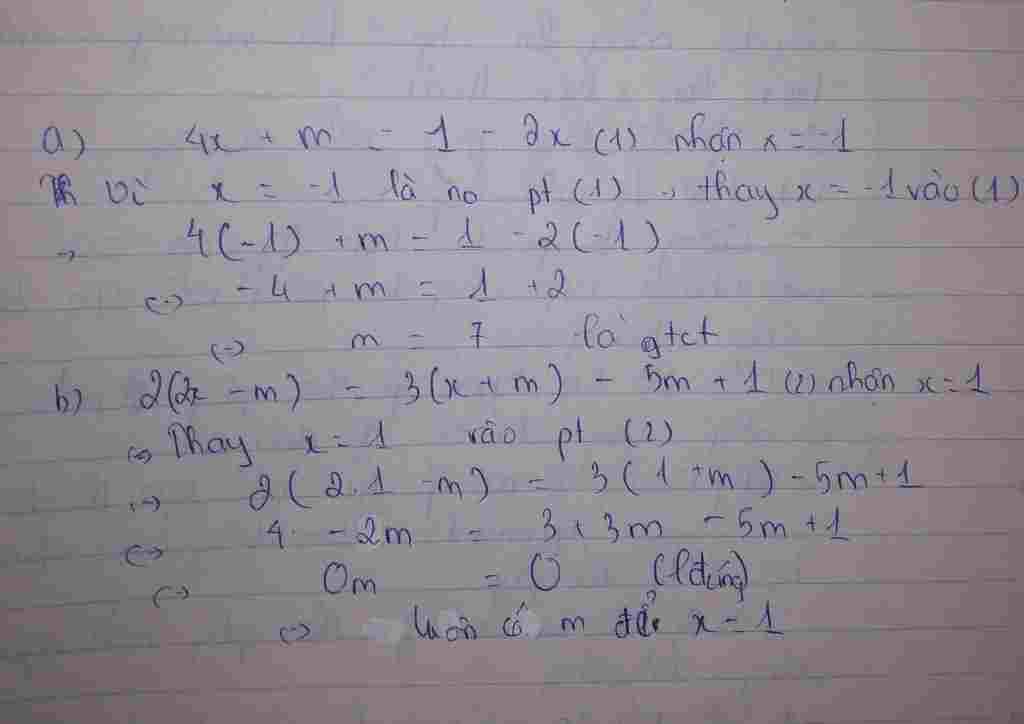 a) 4x + m = 1 - 2x (1) nhận x = -1
Vì x = -1 là no pt (1), thay x = -1 vào (1)
→ 4(-1) + m = 1 - 2(-1)
<-> -4 + m = 1 + 2
<-> m = 7 là gtct
b) 2(2x - m) = 3(x + m) - 5m + 1 (2) nhận x = 1
<-> Thay x = 1 vào pt (2)
-> 2(2.1 - m) = 3(1 + m) - 5m + 1
<-> 4 - 2m = 3 + 3m - 5m + 1
<-> 0m = 0 (lđúng)
<-> luôn có m để x = 1